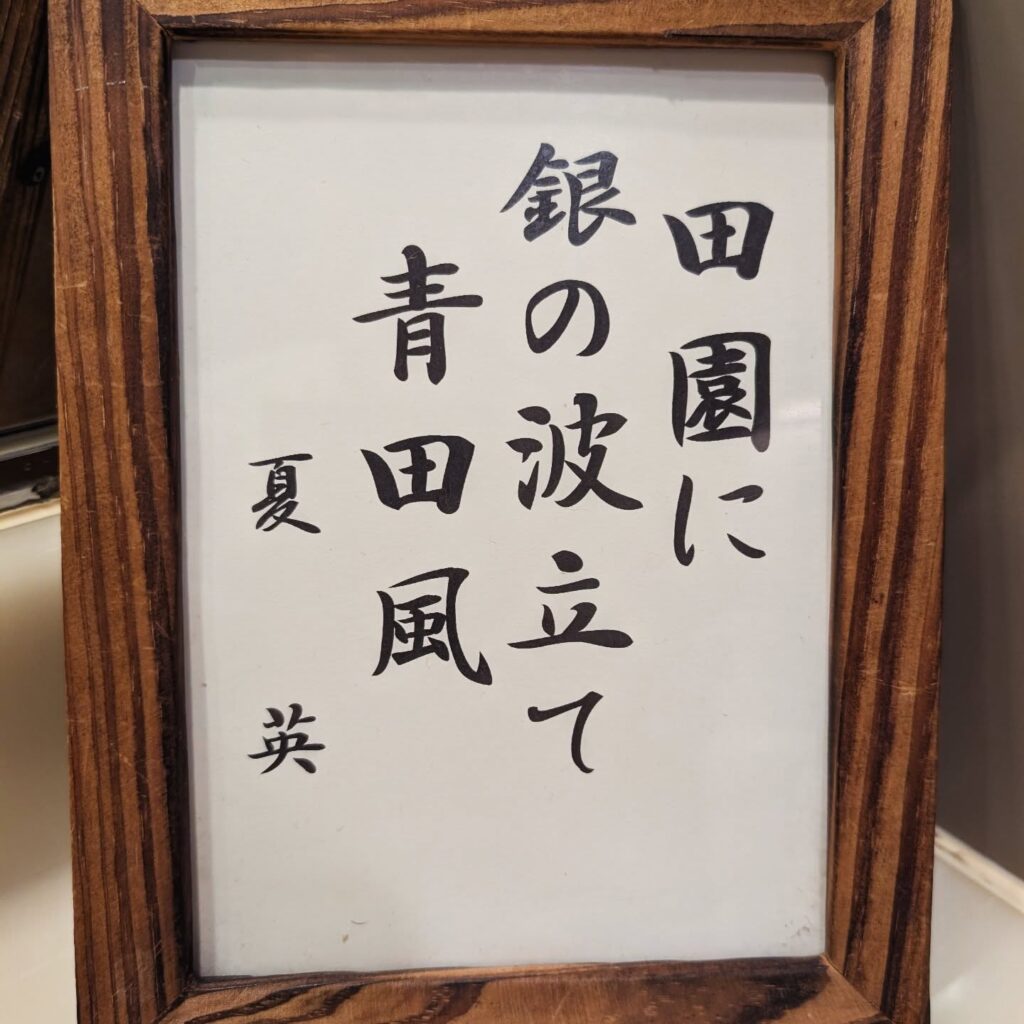 田園に
銀の波立て
青田風
夏英